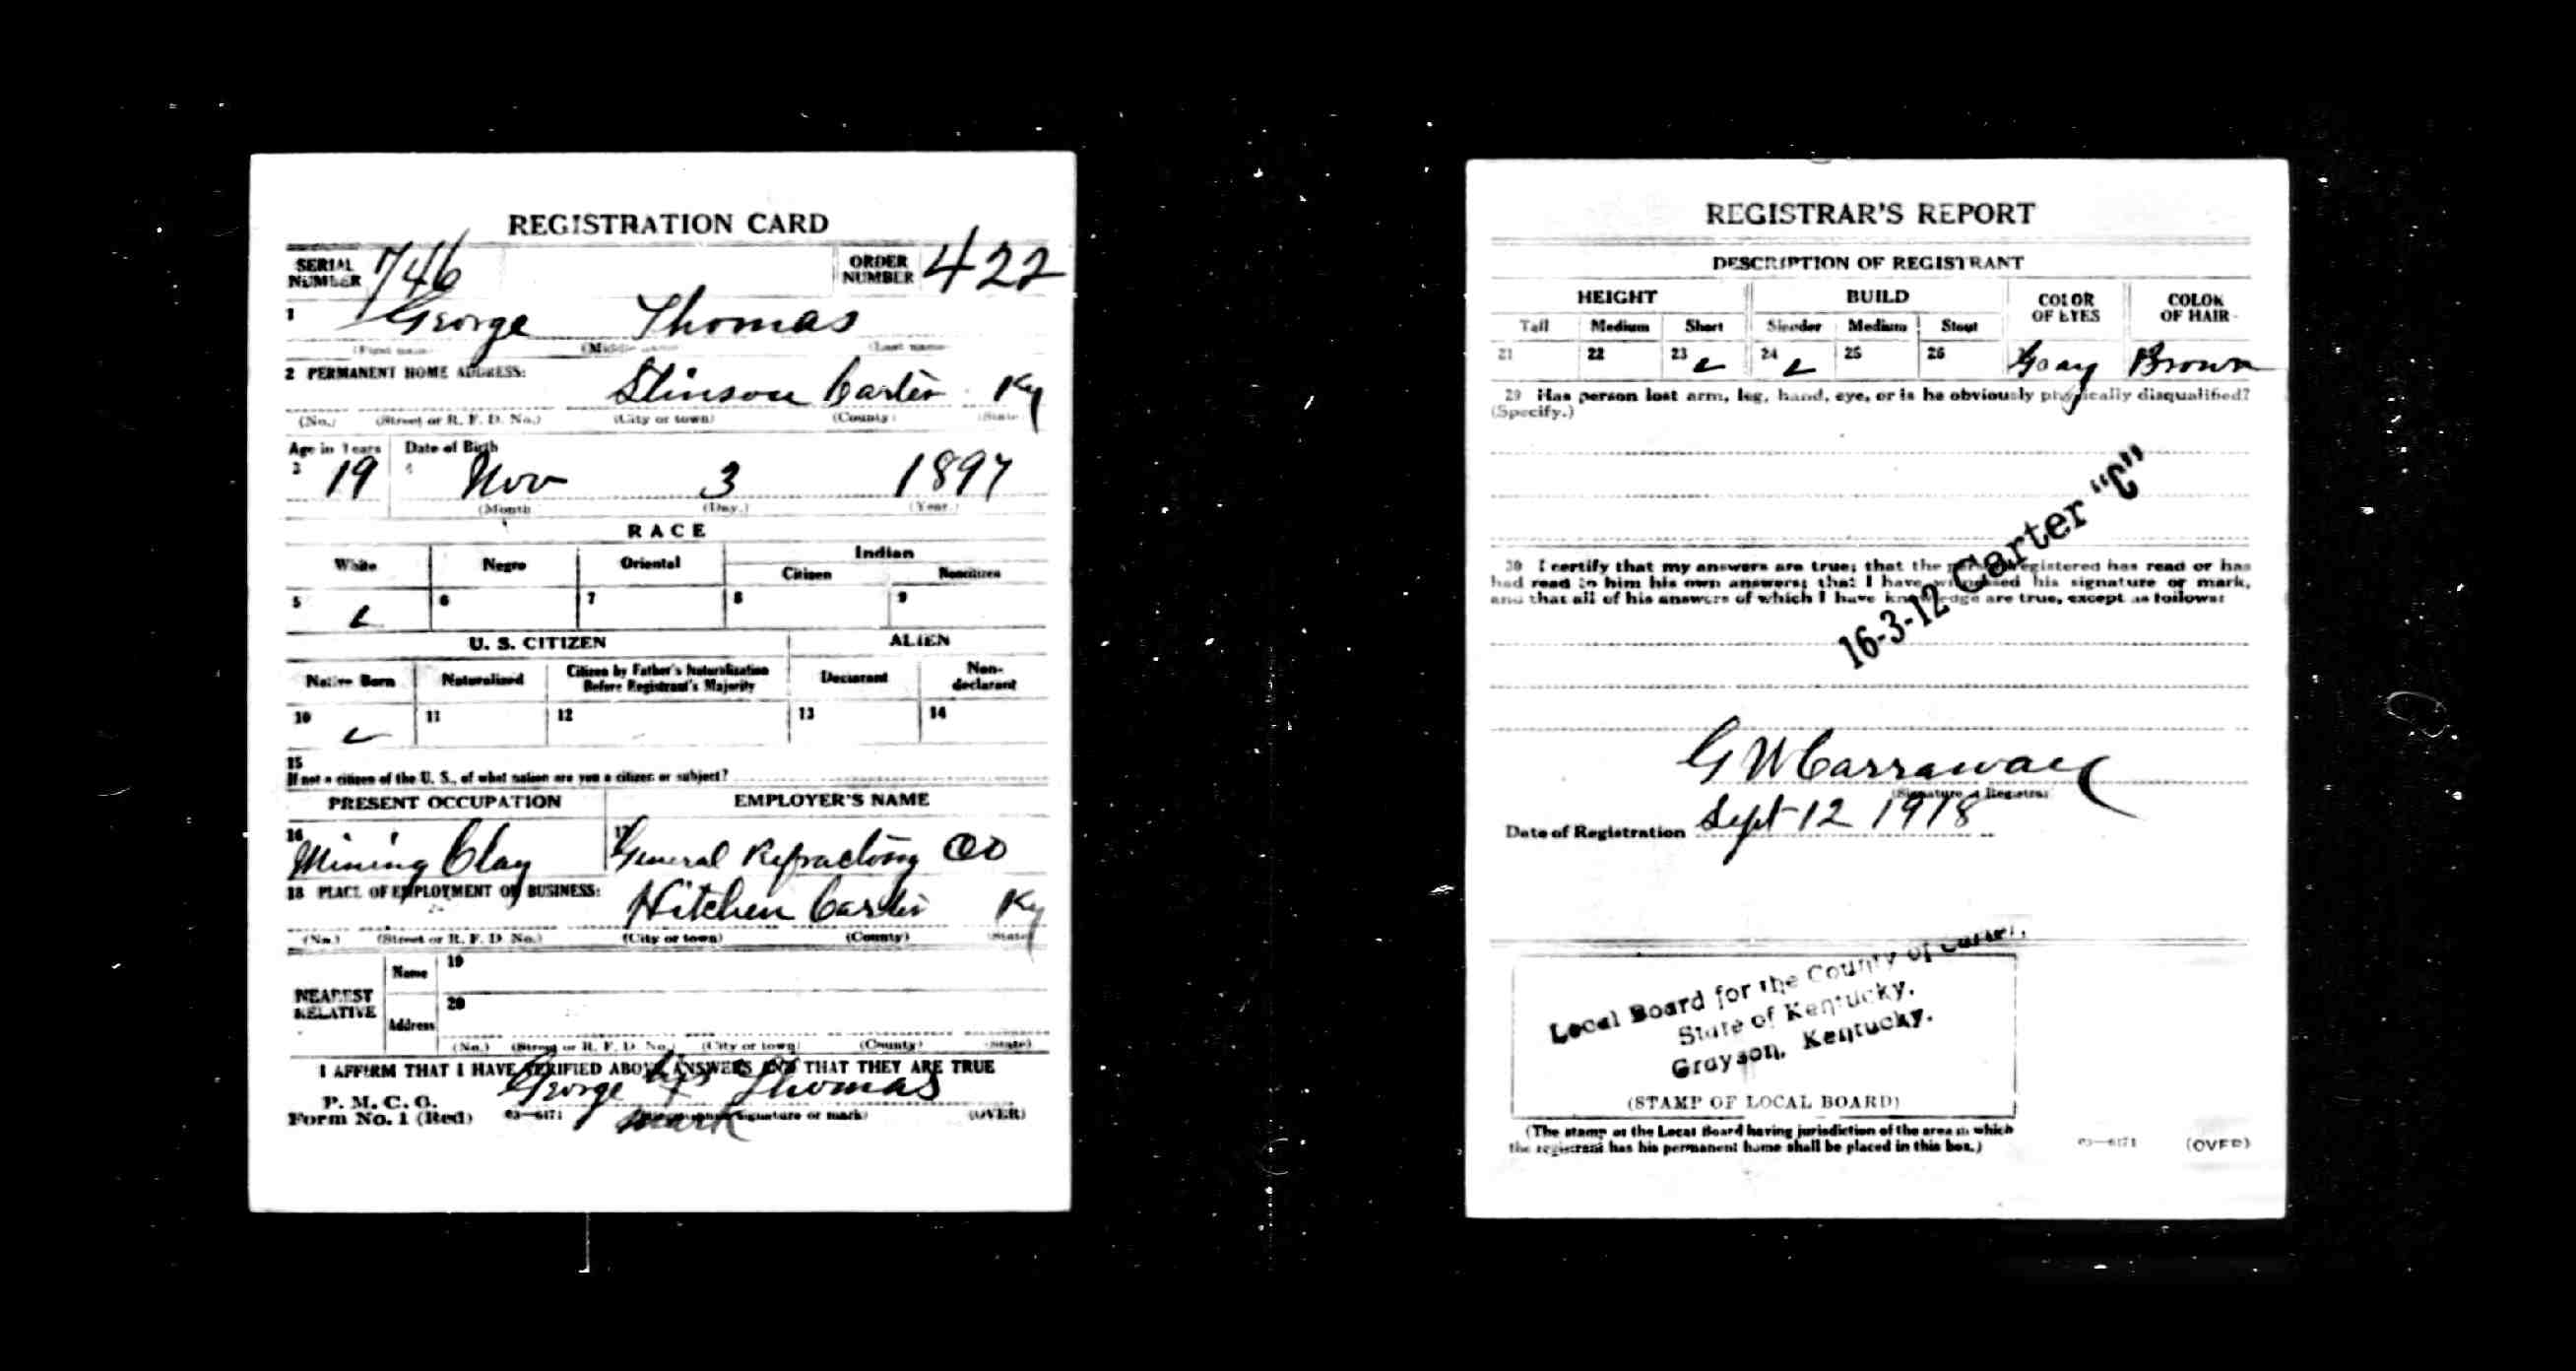 REGISTRATION CARD
SERIAL NUMBER 746 ORDER NUMBER 422
1 George Thomas
(First name) (Middle name) (Last name)
2 PERMANENT HOME ADDRESS:
Stinson Carter Ky
(No.) (Street or R. F. D. No.) (City or town) (County) (State)
Age in Years Date of Birth
3 19 4 Nov 3 1897
(Month) (Day.) (Year.)
RACE
White Negro Oriental Indian
Citizen Noncitizen
5 6 7 8 9
U. S. CITIZEN ALIEN
Native Born Naturalized Citizen by Father's Naturalization Before Registrant's Majority Declarant Non-declarant
10 11 12 13 14
15
If not a citizen of the U. S., of what nation are you a citizen or subject?
PRESENT OCCUPATION EMPLOYER'S NAME
16 Mining Clay 17 General Refractory CO
18 PLACE OF EMPLOYMENT OR BUSINESS:
Hitchen Carter Ky
(No.) (Street or R. F. D. No.) (City or town) (County) (State)
NEAREST RELATIVE
Name 19
Address 20
(No.) (Street or R. F. D. No.) (City or town) (County) (State)
I AFFIRM THAT I HAVE VERIFIED ABOVE ANSWERS AND THAT THEY ARE TRUE
P. M. G. O.
Form No. 1 (Red) 03—6171 (OVER)
George his x mark Thomas
(Registrant's signature or mark)
REGISTRAR'S REPORT
DESCRIPTION OF REGISTRANT
HEIGHT BUILD COLOR OF EYES COLOR OF HAIR
Tall Medium Short Slender Medium Stout
21 22 23 24 25 26 Gray Brown
29 Has person lost arm, leg, hand, eye, or is he obviously physically disqualified?
(Specify.)
30 I certify that my answers are true; that the person registered has read or has
had read to him his own answers; that I have witnessed his signature or mark,
and that all of his answers of which I have knowledge are true, except as follows:
16-3-12 Carter "C"
G W Carraway
(Signature of Registrar)
Date of Registration Sept 12 1918
Local Board for the County of Carter,
State of Kentucky,
Grayson, Kentucky.
(STAMP OF LOCAL BOARD)
(The stamp of the Local Board having jurisdiction of the area in which
the registrant has his permanent home shall be placed in this box.)
03—6171 (OVER)